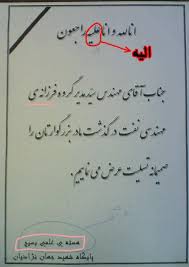 انالله و انا علیه راجعون
الیه
جناب آقای مهندس سید مدیر گروه فرزانه ی
مهندسی نفت درگذشت مادر بزرگوارتان را
صمیمانه تسلیت عرض می نماییم.
هسته ی علمی بسیج
پایگاه شهید جهان نژادیان